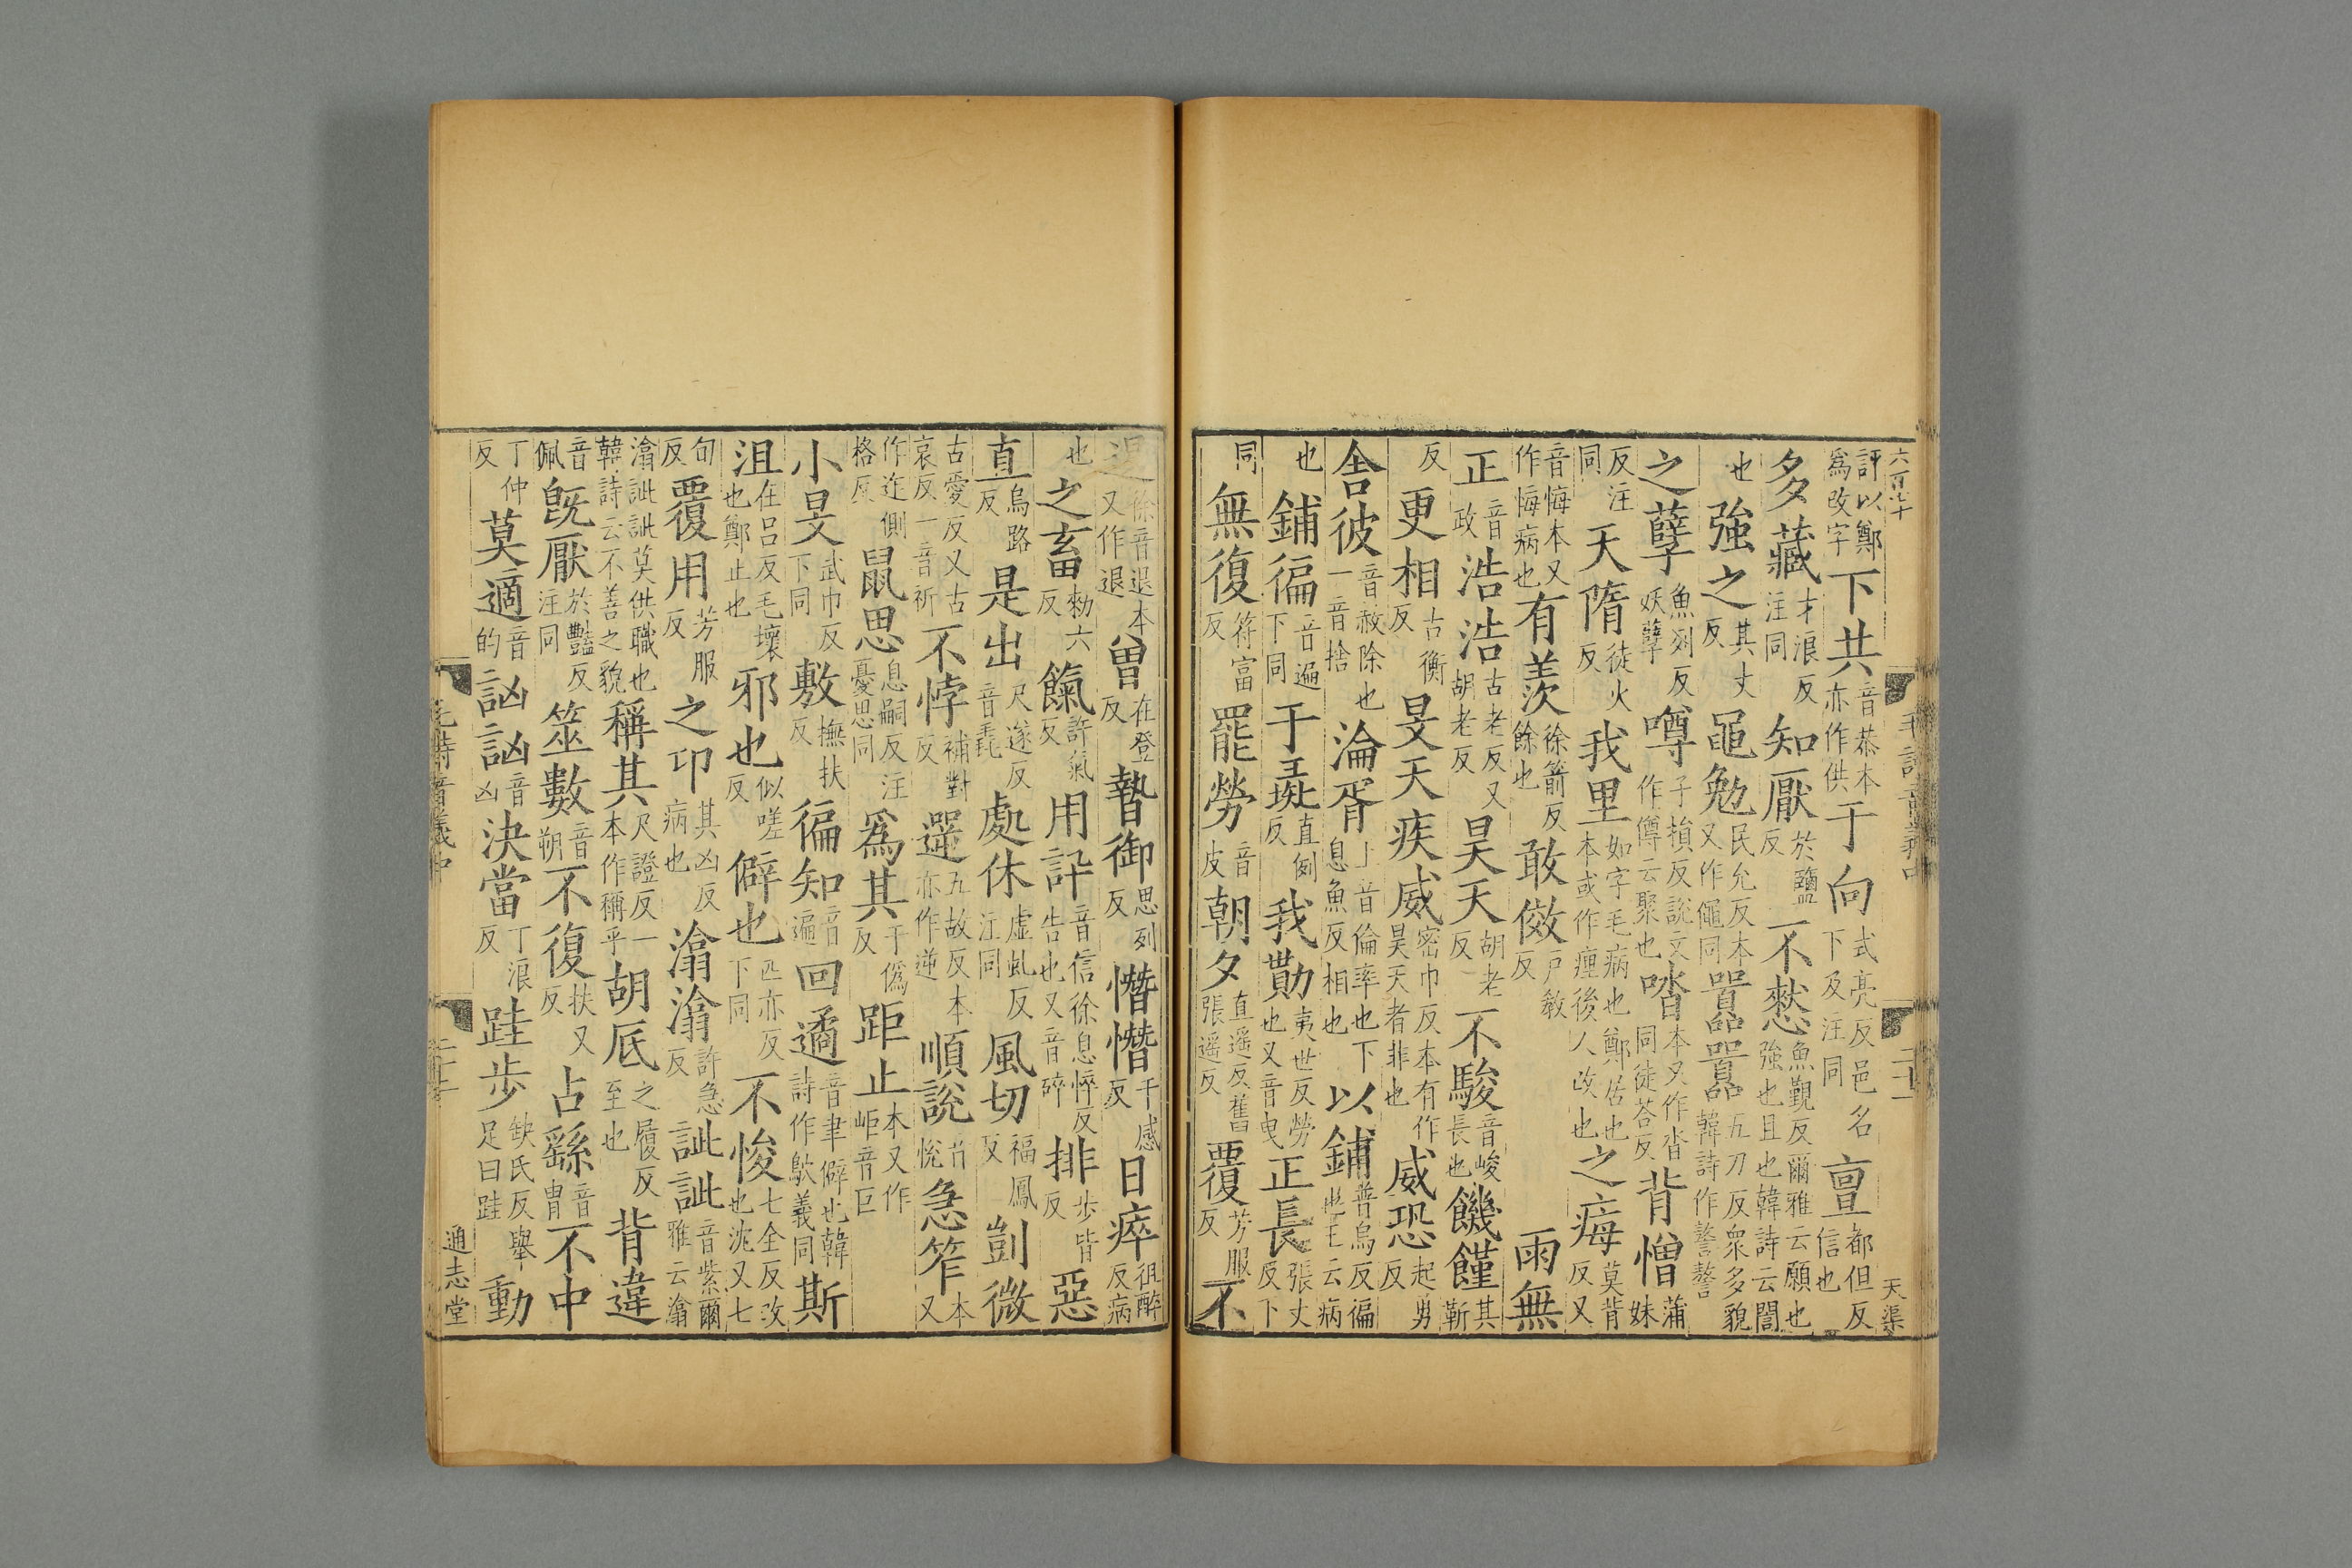 評以鄭爲改字下共音恭本亦作供于向式亮反邑名下及注同亶都但反信也
多藏才浪反注同知厭於鹽反不憖魚覲反爾雅云願也強也且也韓詩云誾
也強之其丈反黽勉民允反本又作僶同囂囂五刀反衆多貌韓詩作謷謷
之孽魚列反妖孽噂子損反說文作僔云聚也嗒本又作沓同徒荅反背憎蒲妹
反注同天隋徒火反我里如字毛病也鄭居也本或作㾖後人改也之痗莫背反又
音悔本又作悔病也有羨徐箭反餘也敢傚戶教反雨無
正音政浩浩古老反又胡老反昊天胡老反不駿音峻長也饑饉其靳
反更相古衡反旻天疾威密巾反本有作昊天者非也威恐起勇反
舍彼音赦除也一音捨淪胥上音倫率也下息魚反相也以鋪普烏反徧也王云病
也鋪徧音遍下同于彘直例反我勩夷世反勞也又音曳正長張丈反下
同無復符富反罷勞音皮朝夕直遥反舊張遥反覆芳服反不
徐音退本也又作退曾在登反暬御思列反憯憯千感反日瘁徂醉反病
也之畜勑六反餼許氣反用訊音信徐息悴反告也又音碎排步皆反惡
直烏路反是出尺遂反音毳處休虛虬反注同風切福鳳反剴微
古愛反又古哀反一音祈不悖補對反遻五故反本亦作逆順說音悅急笮本又
作迮側格反鼠思息嗣反注憂思同爲其于僞反距止本又作岠音巨
小旻武巾反下同敷撫扶反徧知音遍回遹音聿僻也韓詩作鴥義同斯
沮在呂反毛壞也鄭止也邪也似嗟反僻也匹亦反下同不悛七全反改也沈又七
旬反覆用芳服反之卭其凶反病也潝潝許急反訿訿音紫爾雅云潝
潝訿訿莫供職也韓詩云不善之貌稱其尺證反一本作稱乎胡底之履反至也背違
音佩旣厭於豔反注同筮數音朔不復扶又反占繇音胄不中
丁仲反莫適音的訩訩音凶決當丁浪反跬步缺氏反舉足曰跬動
通志堂